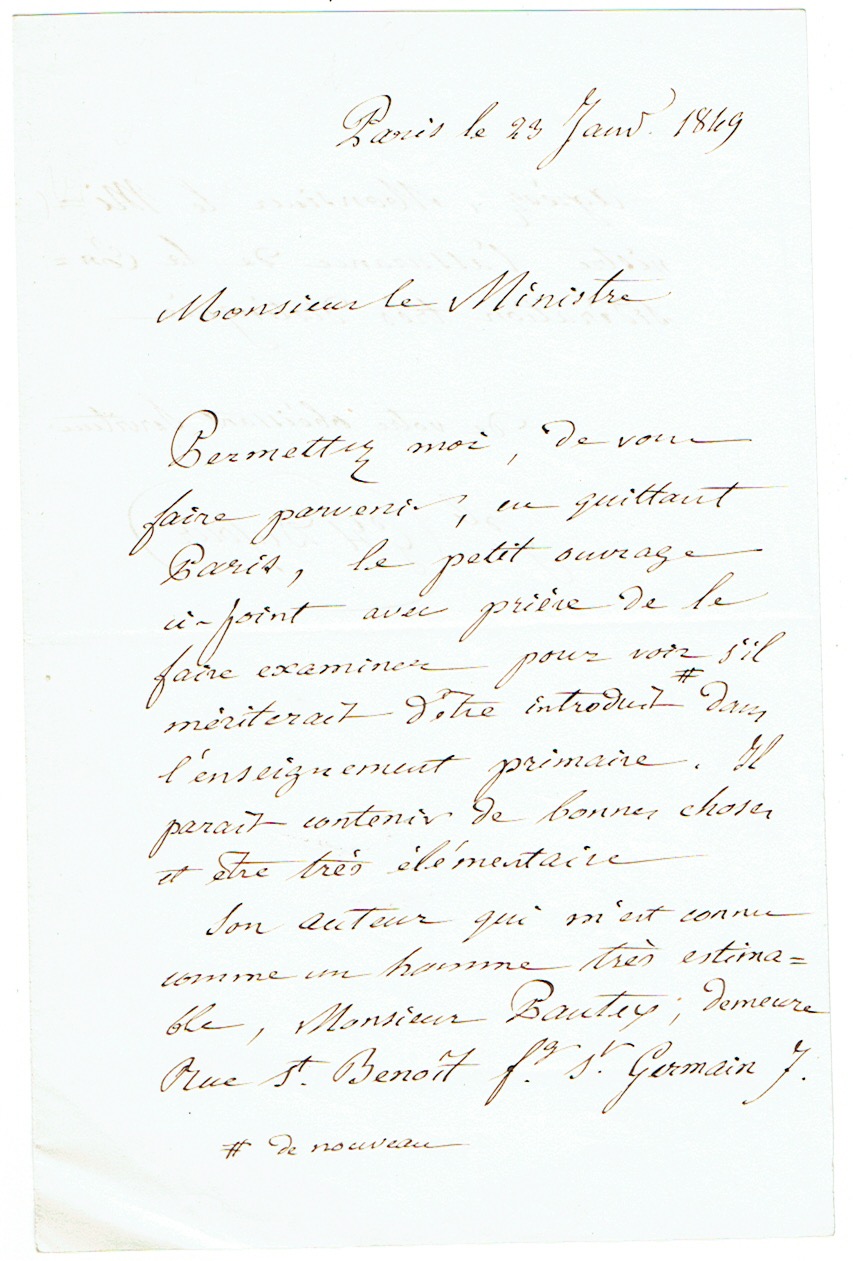 Paris le 23 Janv. 1849
Monsieur le Ministre
Permettez moi, de vous
faire parvenir, en quittant
Paris, le petit ouvrage
ci-joint avec prière de le
faire examiner pour voir s'il
mériterait d'être introduit # dans
l'enseignement primaire. Il
parait contenir de bonnes choses
et être très élémentaire
Son auteur qui m'est connu
comme un homme très estima=
ble, Monsieur Pautex, demeure
Rue St. Benoît fg. St. Germain 7.
# de nouveau